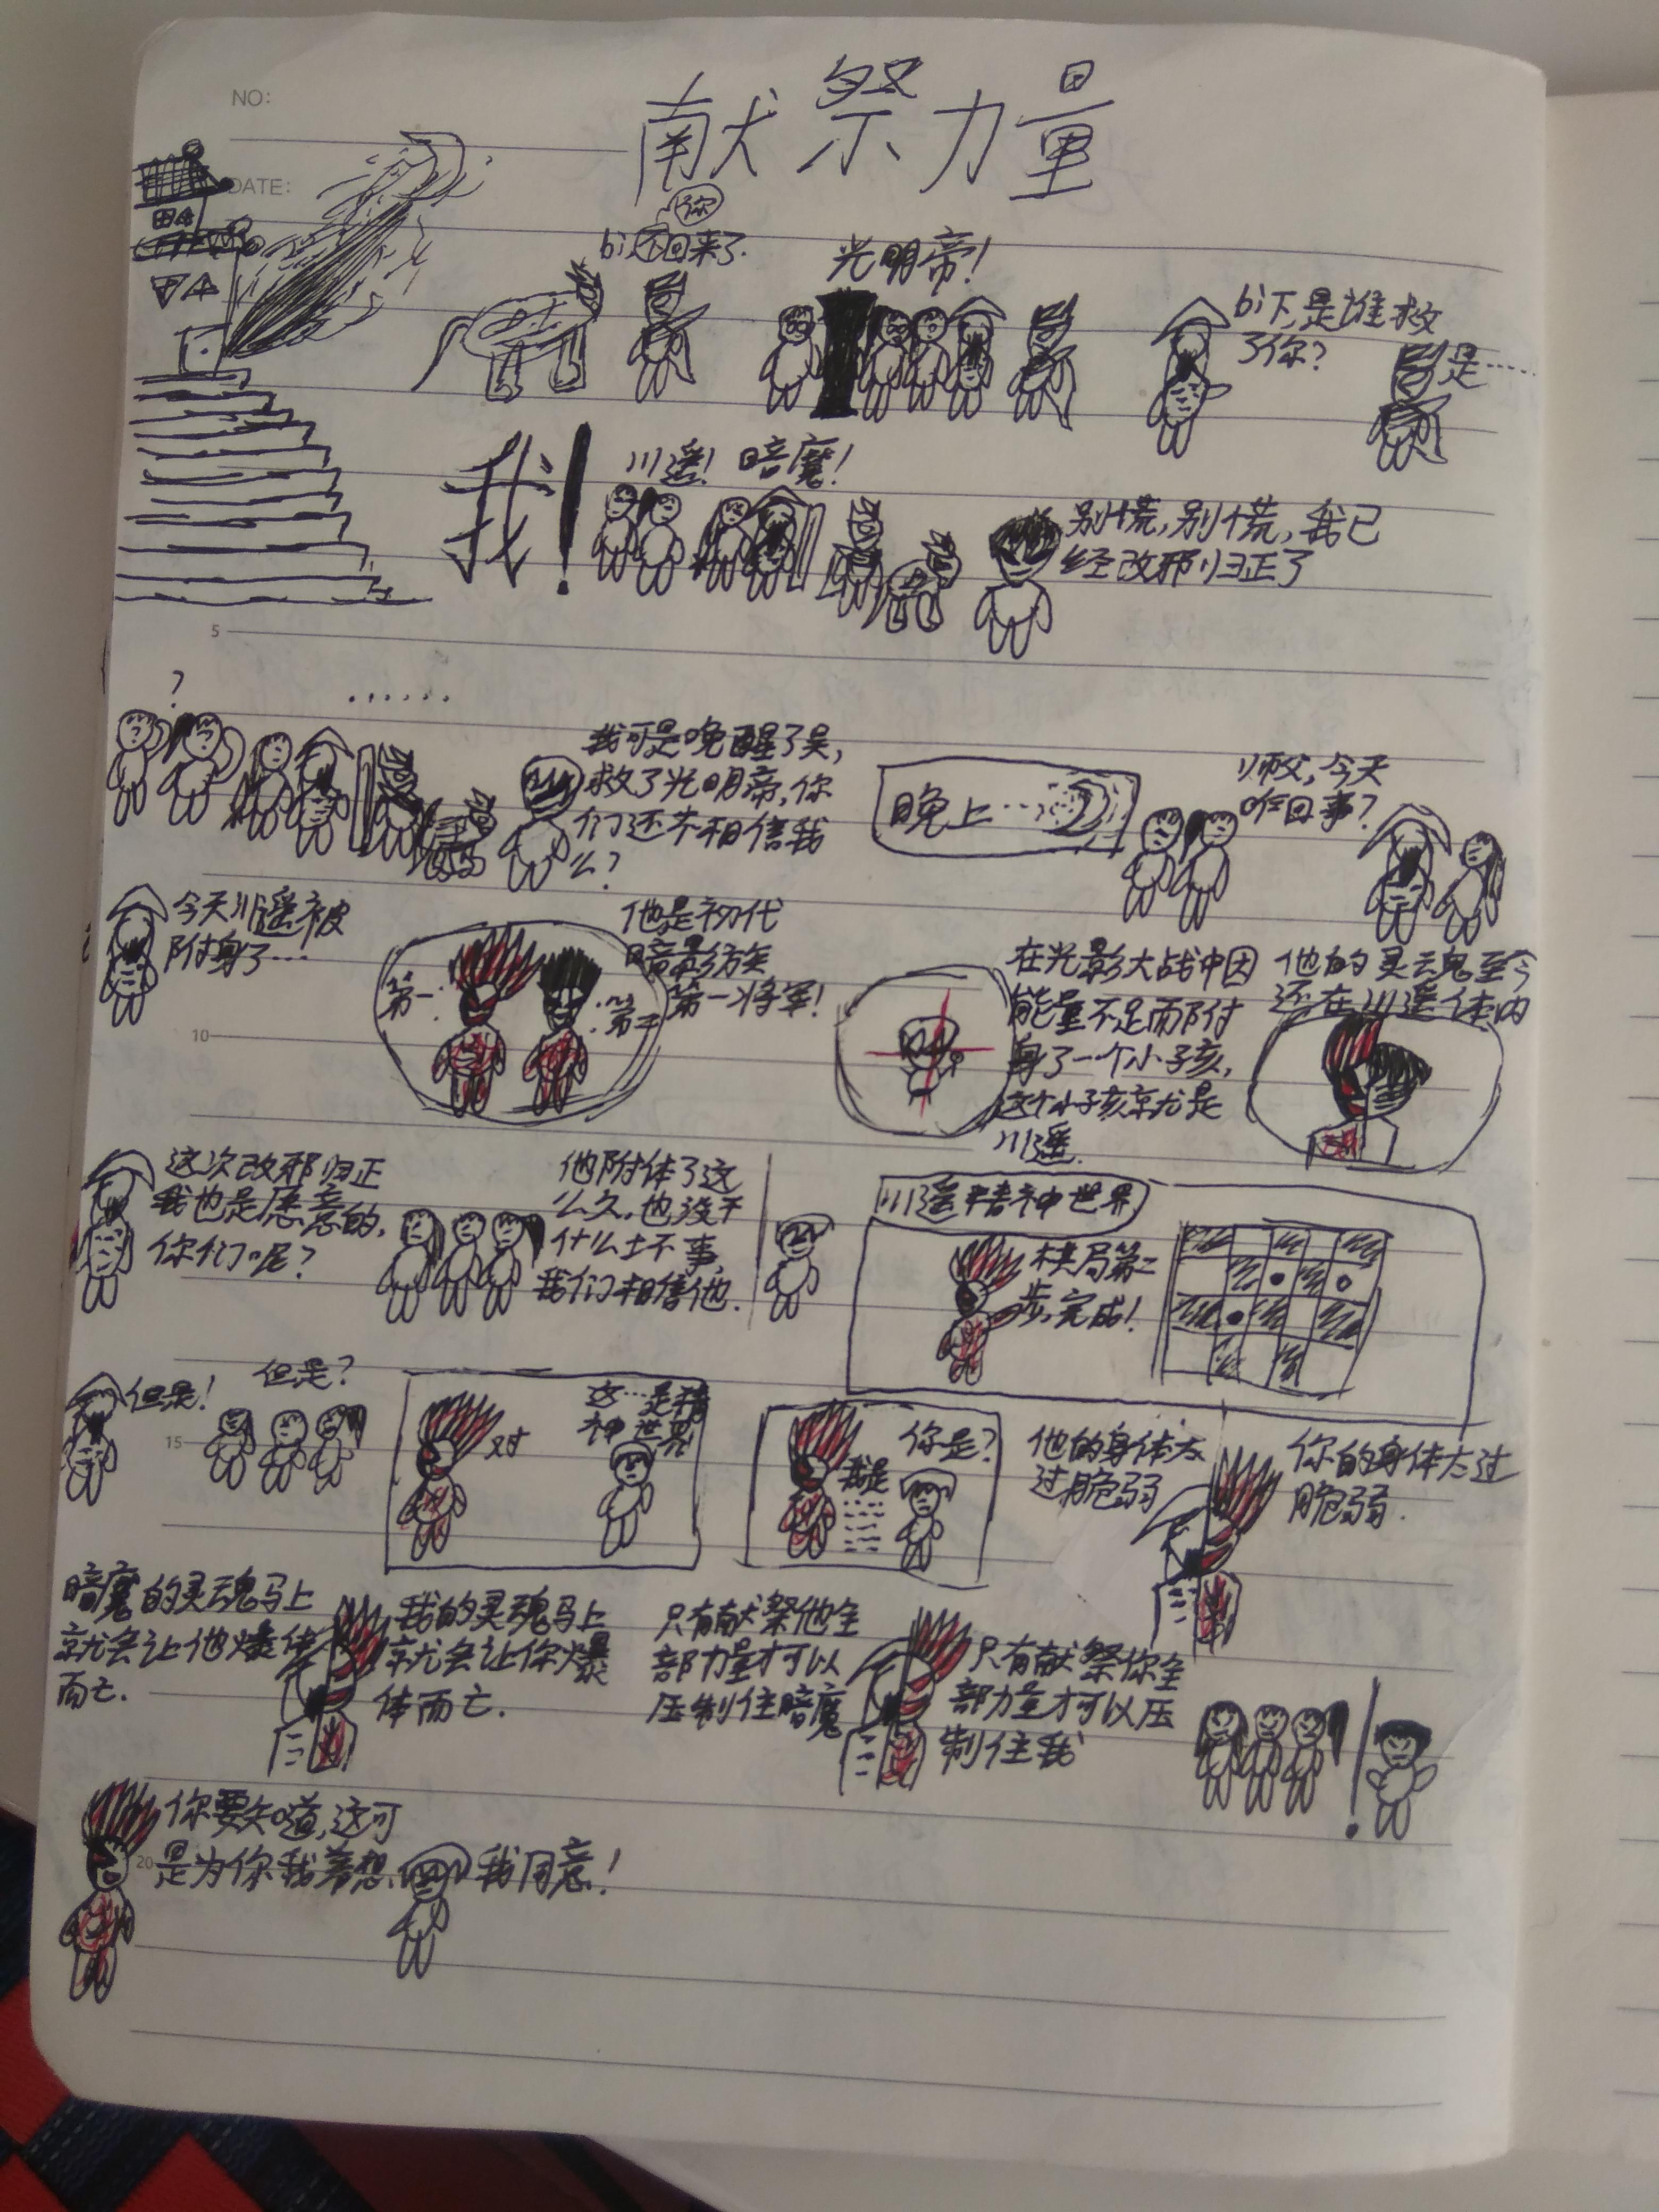 NO:
DATE:
献祭力量
你
bi下回来了.
光明帝!
bi下,是谁救
了你?
是……
我!
川遥!
暗魔!
别慌,别慌,我已
经改邪归正了
5
?
......
我可是唤醒了吴,
救了光明帝,你
们还不相信我
么?
晚上…
师父,今天
咋回事?
今天川遥被
附身了…
第一
第二
他是初代
暗影族
第一将军!
10
在光影大战中因
能量不足而附
身了一个小孩,
这个小孩就是
川遥.
他的灵魂至今
还在川遥体内
这次改邪归正
我也是愿意的,
你们呢?
他附体了这
么久,也没干
什么坏事,
我们相信他.
川遥精神世界
棋局第二
步,完成!
但是!
但是?
15
对
这…是精
神世界!
你是?
我是
他的身体太
过脆弱
你的身体太过
脆弱.
暗魔的灵魂马上
就会让他爆体
而亡.
我的灵魂马上
就会让你爆
体而亡.
只有献祭他全
部力量才可以
压制住暗魔
只有献祭你全
部力量才可以压
制住我
!
你要知道,这可
是为你我着想
20
我同意!